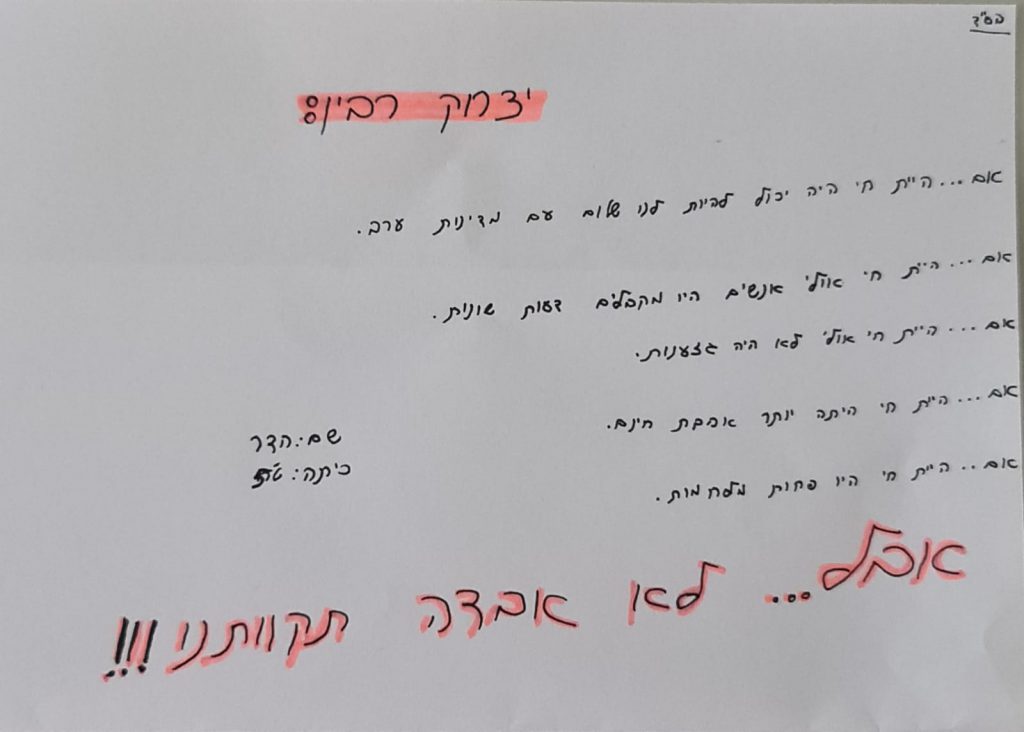 בס"ד
יצחק רבין:
אם...היית חי היה יכול להיות לנו שלום עם מדינות ערב.
אם...היית חי אולי אנשים היו מקבלים דעות שונות.
אם...היית חי אולי לא היה גזענות.
אם...היית חי היתה יותר אהבת חינם.
שם: הדר
אם..היית חי היו פחות מלחמות.
כיתה:
אבל... לא אבדה תקוותנו!!!